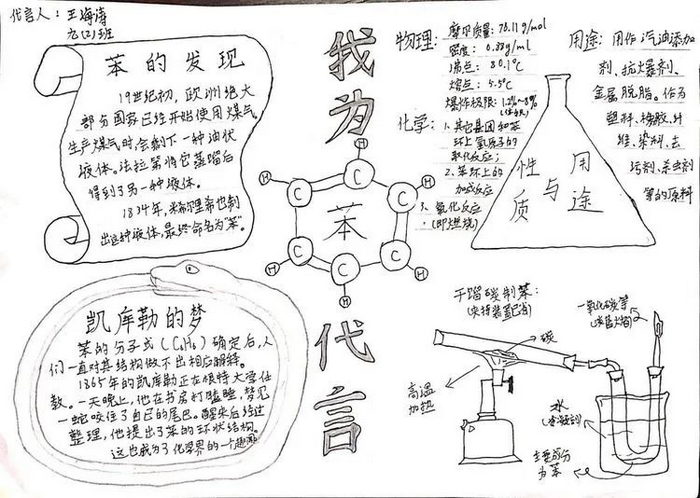 代言人：王海涛
九(2)班
苯的发现
19世纪初，欧洲绝大
部分国家已经开始使用煤气。
生产煤气时，会剩下一种油状
液体。法拉第将它蒸馏后
得到了另一种液体。
1834年，米希尔里希也制
出这种液体，最终命名为"苯"。
凯库勒的梦
苯的分子式(C₆H₆)确定后，人
们一直对其结构做不出相应解释。
1865年的凯库勒正在根特大学任
教。一天晚上，他在书房打瞌睡，梦见
一蛇咬住了自己的尾巴。醒来后经过
整理，他提出了苯的环状结构。
这也成为了化学界的一个趣闻
我为
苯
代言
H
H
H
H
H
H
C
C
C
C
C
C
物理：
摩尔质量：78.11g/mol
密度：0.88g/ml
沸点：80.1℃
熔点：5.5℃
爆炸极限：1.2%~8%
化学：
1、其它基团和苯
环上氢原子的
取代反应；
2、苯环上的
加成反应
3、氧化反应
(即燃烧)
性质与用途
用途：用作汽油添加
剂、抗爆剂、
金属脱脂。作为
塑料、橡胶、纤
维、染料、去
污剂、杀虫剂
等的原料
干馏碳制苯：
(夹持装置已省)
碳
高温
加热
一氧化碳等
水
(冷凝剂)
主要成分
为苯